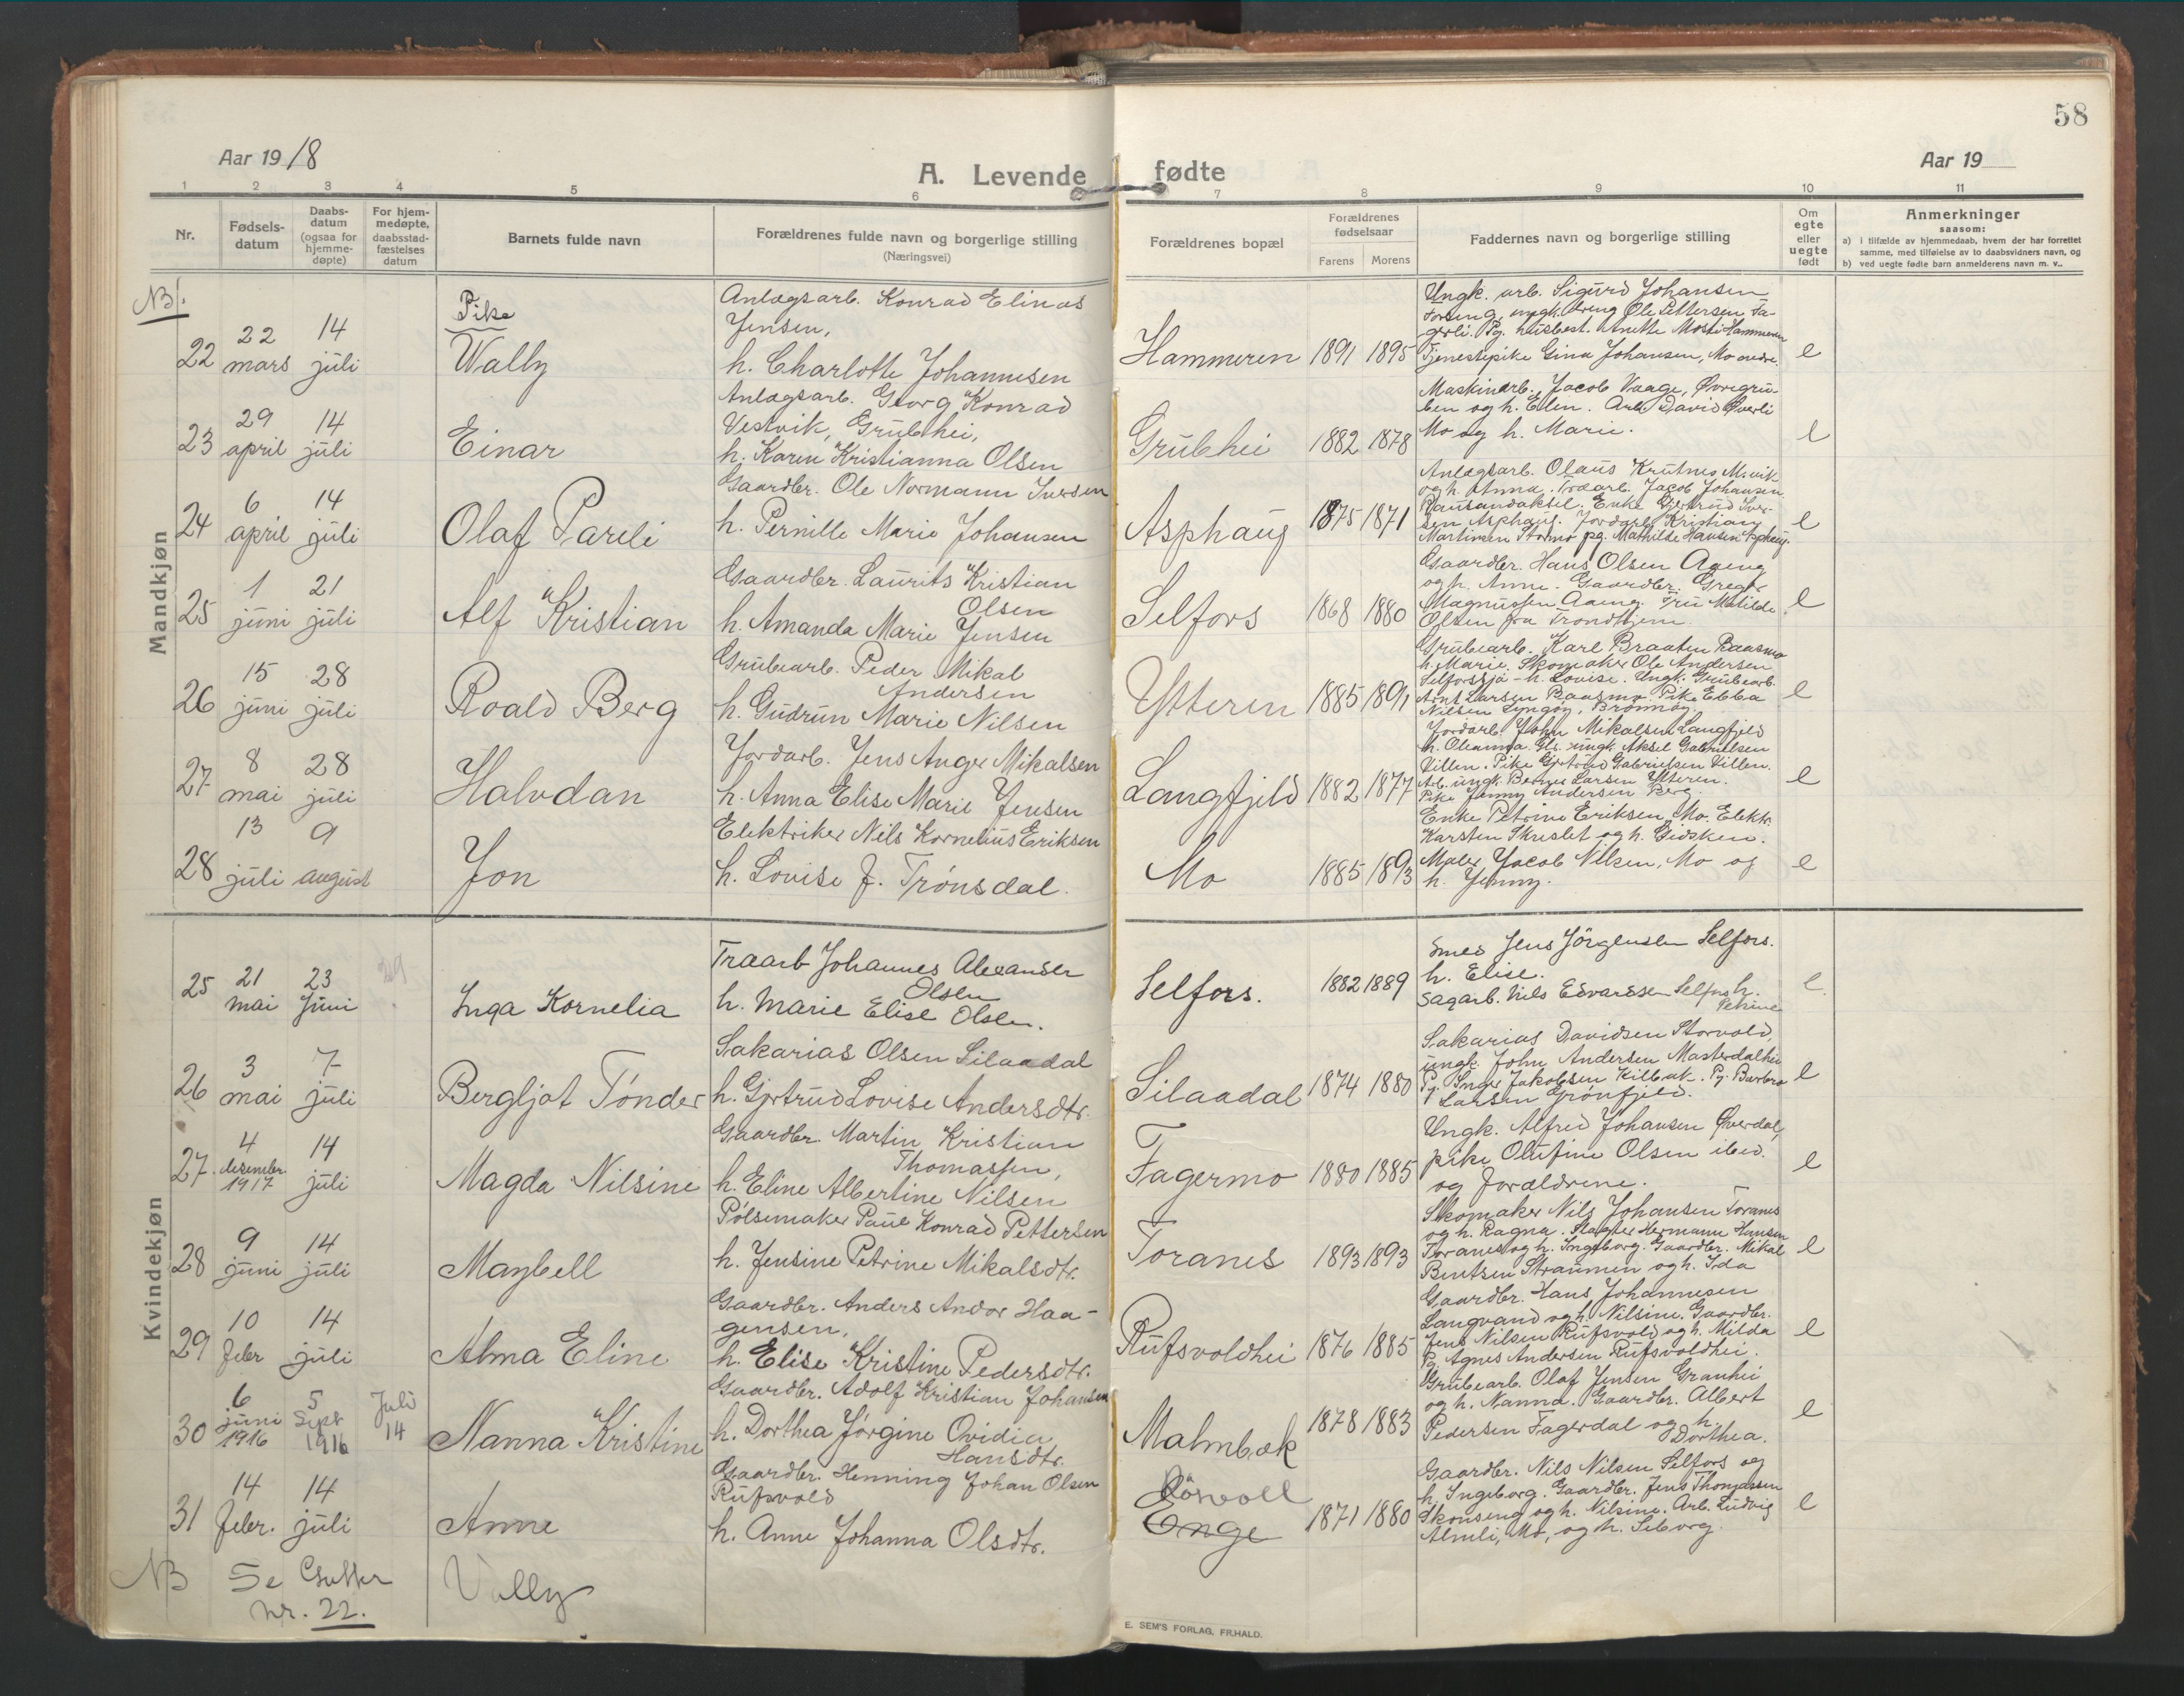 58
Aar 1918
A. Levende fødte
Aar 19
1 2 3 4 5 6 7 8 9 10 11
Nr.
Fødsels-
datum
Daabs-
datum
(ogsaa for
hjemme-
døpte)
For hjem-
medøpte,
daabsstad-
fæstelses
datum
Barnets fulde navn
Forældrenes fulde navn og borgerlige stilling
(Næringsvei)
Forældrenes bopæl
Forældrenes
fødselsaar
Farens Morens
Faddernes navn og borgerlige stilling
Om
egte
eller
uegte
født
Anmerkninger
saasom:
a) i tilfælde av hjemmedaab, hvem der har forrettet
samme, med tilføielse av to daabsvidners navn, og
b) ved uegte fødte barn anmelderens navn m. v..
Mandkjøn
NB.
22
22 mars
14 juli
Pike
Wally
Anlægsarb. Konrad Elinas
Jensen,
h. Charlotte Johannesen
Hammeren
1891 1895
Ungk. arb. Sigurd Johansen
Forseng, ungk. dreng Ole Pettersen Fa-
gerli. Pg. husbest. Anette Mosti Hammeren
Tjenestepike Gina Johansen, Mo nedre.
e
23
29 april
14 juli
Einar
Anlægsarb. Georg Konrad
Vestvik, Grubhei,
h. Karen Kristianna Olsen
Grubhei
1882 1878
Maskinarb. Jacob Vaage, Øvregru-
ben og h. Elen. Arb. David Øverli
Mo og h. Marie.
e
24
6 april
14 juli
Olaf Pareli
Gaardbr. Ole Normann Iversen
h. Pernille Marie Johansen
Asphaug
1875 1871
Anlægsarb. Olaus Krutnes M.vik
og h. Anna. Træarb. Jacob Johansen
Enke Gjertrud Iver-
sen Asphaug. Jordarb. Kristian
Martinsen Stormo pg. Mathilde Hansen Asphaug.
e
25
1 juni
21 juli
Alf Kristian
Gaardbr. Laurits Kristian
Olsen
h. Amanda Marie Jensen
Selfors
1868 1880
Gaardbr. Hans Olsen Aaeng
og h. Anne. Gaardbr. Greger
Magnussen Aaeng. Fru Matilde
Olsen fra Trondhjem.
e
26
15 juni
28 juli
Roald Berg
Grubearb. Peder Mikal
Andersen
h. Gudrun Marie Nilsen
Ytteren
1885 1891
Grubearb. Karl Braaten Baasmo
h. Marie. Skomaker Ole Andersen
Selforssjø - h. Lovise. Ungk. Grubearb.
Arnt Larsen Baasmo. Pike Ebba
Nilsen Lyngøy, Brønnøy.
e
27
8 mai
28 juli
Halvdan
Jordarb. Jens Anger Mikalsen
h. Anna Elise Marie Jensen
Langfjeld
1882 1877
Jordarb. John Mikalsen Langfjeld
h. Oleanna. Gbr. ungk. Aksel Gabrielsen
Villen. Pike Gjertrud Gabrielsen Villen.
Arb. ungk. Bernes Larsen Ytteren.
Pike Jenny Andersen Berg.
e
28
13 juli
9 august
Jon
Elektriker Nils Kornelius Eriksen
h. Lovise J. Trønsdal.
Mo
1885 1893
Enke Petrine Eriksen, Mo. Elektr.
Karsten Skreslet og h. Gidsken.
Maler Jacob Nilsen, Mo og
h. Jenny.
e
Kvindekjøn
25
21 mai
23 Juni
Inga Kornelia
Træarb Johannes Alexander
Olsen
h. Marie Elise Olsen.
Selfors.
1882 1889
Smed Jens Jörgensen Selfors.
h. Elise.
Sagarb. Nils Edvardsen Selfors h.
Petrine
e.
26
3 mai
7 juli
Bergljot Tønder
Sakarias Olsen Silaadal
h. Gjrtrud Lovise Andersdtr.
Silaadal
1874 1880
Sakarias Davidsen Storvold,
ungk. John Andersen Masterdalhei
Pg. Inger Jakobsen Kilbæk. Pg. Barbro
Larsen Grønfjeld.
e
27
4 desember. 1917
14 juli
Magda Nilsine
Gaardbr. Martin Kristian
Thomassen,
h. Eline Albertine Nilsen
Fagermo
1880 1885
Ungk. Alfred Johansen Øverdal,
pike Olufine Olsen ibid.
og forældrene.
e
28
9 juni
14 juli
Maybell
Pølsemaker Paul Konrad Pettersen
h. Jensine Petrine Mikalsdtr.
Toranes
1893 1893
Skomaker Nils Johansen Toranes
og h. Ragna. Slagter Hermann Hansen
Toranes og h. Ingeborg. Gaardbr. Mikal
Bentsen Straumen og h. Ida
e
29
10 febr
14 juli
Alma Eline
Gaardbr. Anders Andor Haa-
gensen,
h. Elise Kristine Pedersdtr.
Rufsvoldhei
1876 1885
Gaardbr. Hans Johannesen
Langvand og h. Nilsine. Gaardbr.
Jens Nilsen Rufsvold og h. Milda
Pg. Agnes Andersen Rufsvoldhei.
e
30
6 juni 1916
5 Sept 1916
Juli 14
Nanna Kristine
Gaardbr. Adolf Kristian Johansen
h. Dorthea Jørgine Ovidia
Hansdtr.
Malmbæk
1878 1883
Grubearb. Olaf Jensen Granhei
og h. Nanna. Gaardbr. Albert
Pedersen Fagerdal og h.
Dorthea.
e
31
14 febr.
14 juli
Anne
Gaardbr. Henning Johan Olsen
Rufsvold
h. Anne Johanna Olsdtr.
Enge
1871 1880
Gaardbr. Nils Nilsen Selfors og
h. Ingeborg. Gaardbr. Jens Thomassen
Skonseng og h. Nilsine. Arb. Ludvig
Almli, Mo, og h. Seborg.
e
NB Se Gutter
nr. 22.
Vally
E. SEM'S FORLAG, FR.HALD.